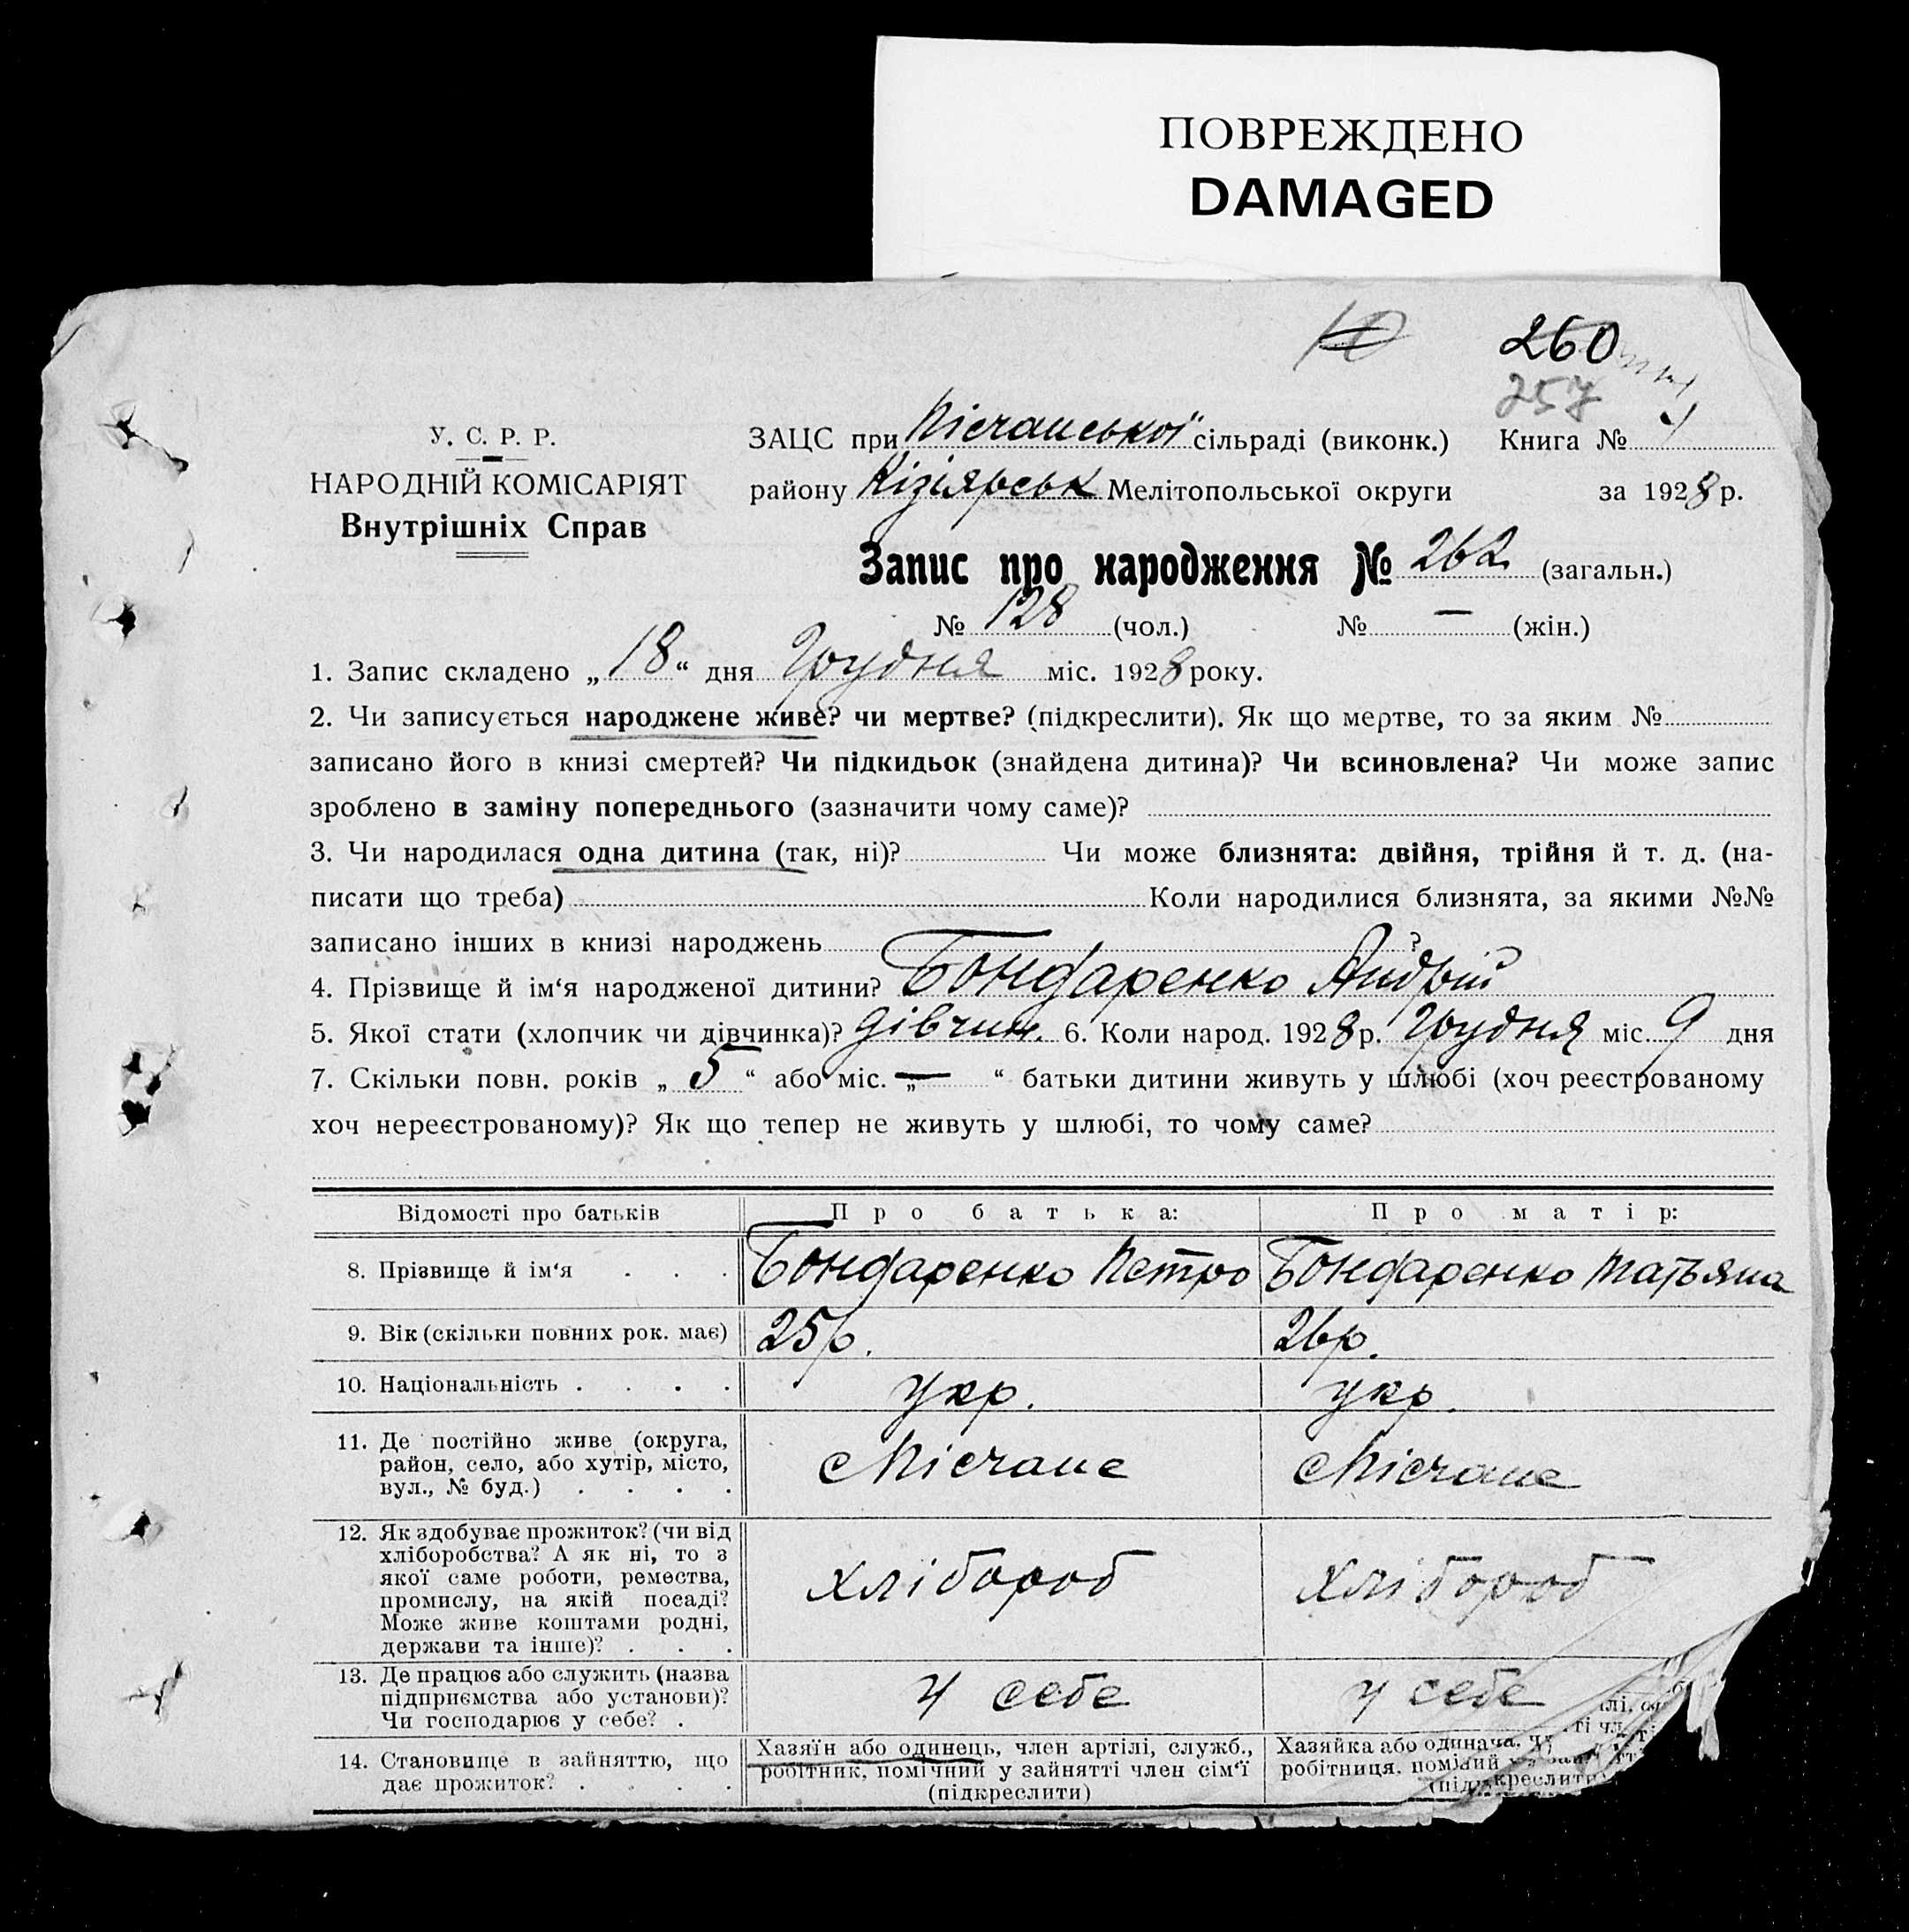 ПОВРЕЖДЕНО
DAMAGED
10
260
257
У. С. Р. Р.
НАРОДНІЙ КОМІСАРІЯТ
Внутрішніх Справ
ЗАЦС при Пісчанської сільраді (виконк.) Книга №
району Кізіярськ Мелітопольської округи за 1928 р.
Запис про народження № 262 (загальн.)
№ 128 (чол.) № — (жін.)
1. Запис складено „ 18 “ дня Грудня міс. 1928 року.
2. Чи записується народжене живе? чи мертве? (підкреслити). Як що мертве, то за яким №
записано його в книзі смертей? Чи підкидьок (знайдена дитина)? Чи всиновлена? Чи може запис
зроблено в заміну попереднього (зазначити чому саме)?
3. Чи народилася одна дитина (так, ні)? Чи може близнята: двійня, трійня й т. д. (на-
писати що треба) Коли народилися близнята, за якими №№
записано інших в книзі народжень ?
4. Прізвище й ім‘я народженої дитини? Бондаренко Андрій
5. Якої стати (хлопчик чи дівчинка)? дівчин. 6. Коли народ. 1928 р. Грудня міс. 9 дня
7. Скільки повн. років „ 5 “ або міс. „ — “ батьки дитини живуть у шлюбі (хоч реєстрованому
хоч нереєстрованому)? Як що тепер не живуть у шлюбі, то чому саме?
Відомості про батьків Про батька: Про матір:
8. Прізвище й ім‘я . . . Бондаренко Петро Бондаренко Татьяна
9. Вік (скільки повних рок. має) 25 р. 26 р.
10. Національність . . . . укр. укр.
11. Де постійно живе (округа,
район, село, або хутір, місто,
вул., № буд.) . . . .
с Пісчане с Пісчане
12. Як здобуває прожиток? (чи від
хліборобства? А як ні, то з
якої саме роботи, ремества,
промислу, на якій посаді?
Може живе коштами родні,
держави та інше)? . . .
хлібороб хлібороб
13. Де працює або служить (назва
підприємства або установи)?
Чи господарює у себе? .
у себе у себе
14. Становище в зайняттю, що
дає прожиток? . . . .
Хазяїн або одинець, член артілі, служб.,
робітник, помічний у зайнятті член сім‘ї
(підкреслити)
Хазяйка або одинача,
робітниця,